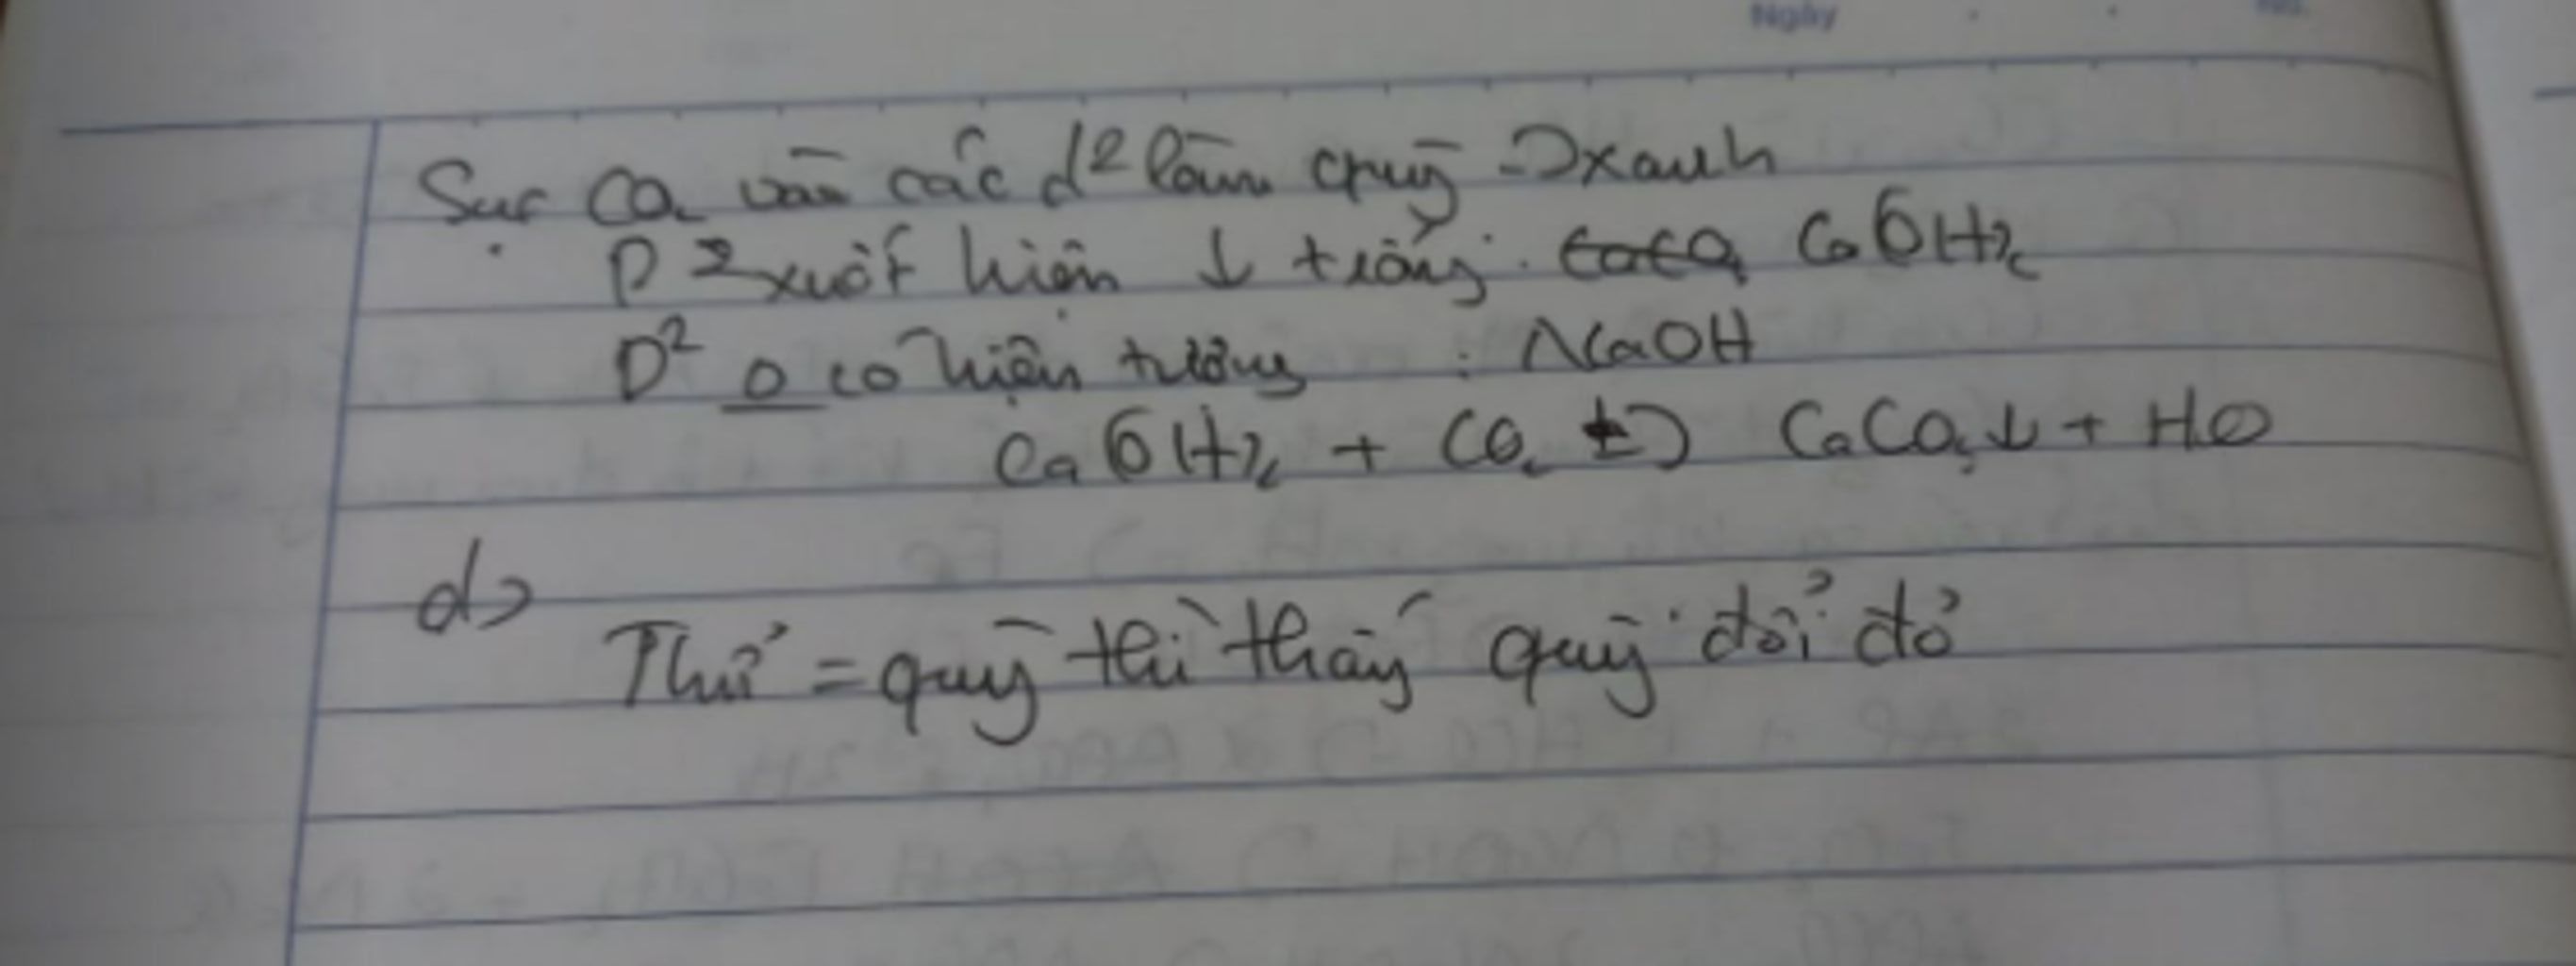 Ngày No.
Sục CO₂ vào các d² làm quỳ → xanh
D² xuất hiện ↓ trắng : CaCO₃ Ca(OH)₂
D² 0 có hiện tượng : NaOH
Ca(OH)₂ + CO₂ → CaCO₃↓ + H₂O
d>
Thử = quỳ thì thấy quỳ đổi đỏ